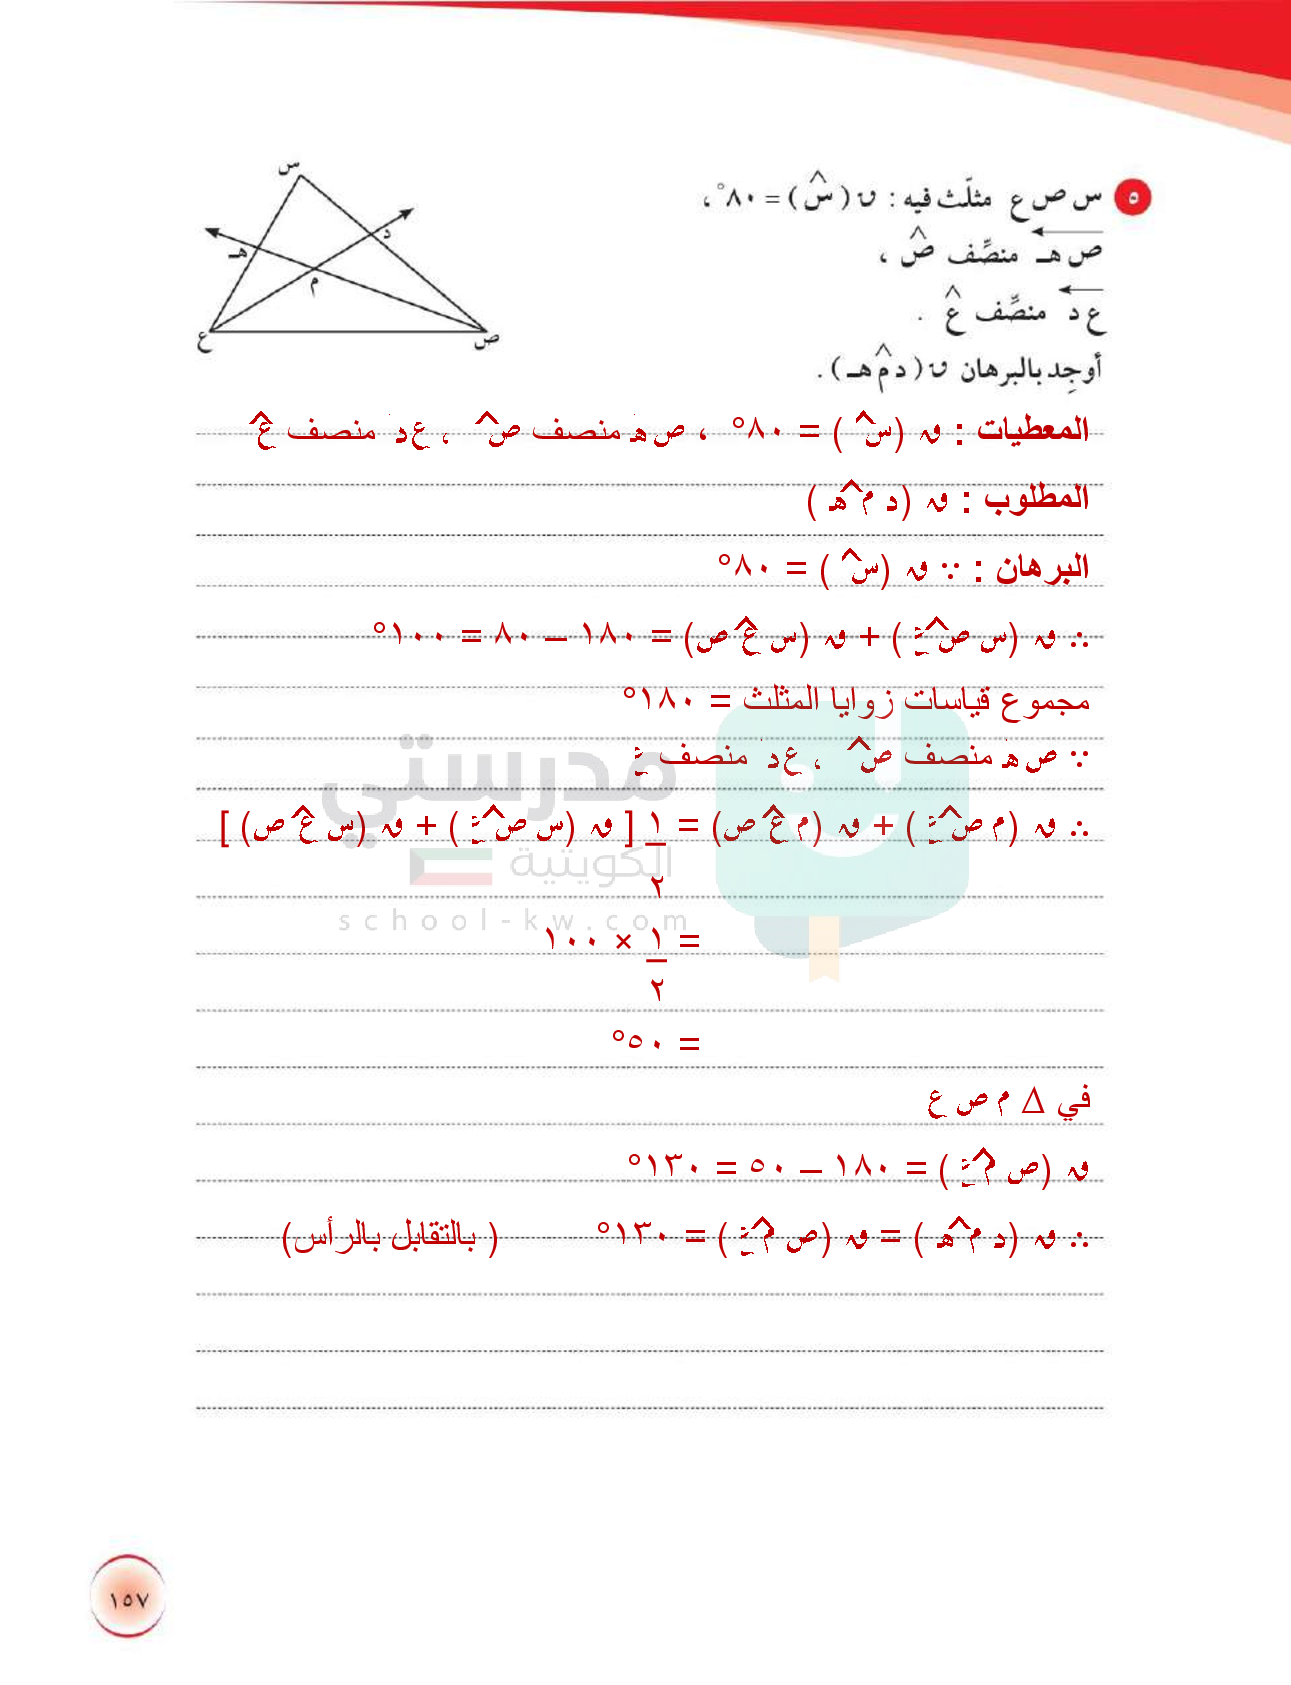 ٥ س ص ع مثلّث فيه : ن (سَ) = ٨٠° ،
ص هـ منصِّف صَ ،
ع د منصِّف عَ .
أوجِد بالبرهان ن (د م هـ) .
س
د
هـ
م
ع
ص
المعطيات : ق (س^) = ٨٠° ، ص هـ منصف ص^ ، ع د منصف ع^
المطلوب : ق (د م^ هـ)
البرهان : ∵ ق (س^) = ٨٠°
∴ ق (س ص^ ع) + ق (س ع^ ص) = ١٨٠ – ٨٠ = ١٠٠°
مجموع قياسات زوايا المثلث = ١٨٠°
∵ ص هـ منصف ص^ ، ع د منصف ع
∴ ق (م ص^ ع) + ق (م ع^ ص) = ١/٢ [ ق (س ص^ ع) + ق (س ع^ ص) ]
= ١/٢ × ١٠٠
= ٥٠°
في Δ م ص ع
ق (ص م^ ع) = ١٨٠ – ٥٠ = ١٣٠°
∴ ق (د م^ هـ) = ق (ص م^ ع) = ١٣٠° ( بالتقابل بالرأس)
مدرستي
الكويتية
school-kw.com
١٥٧